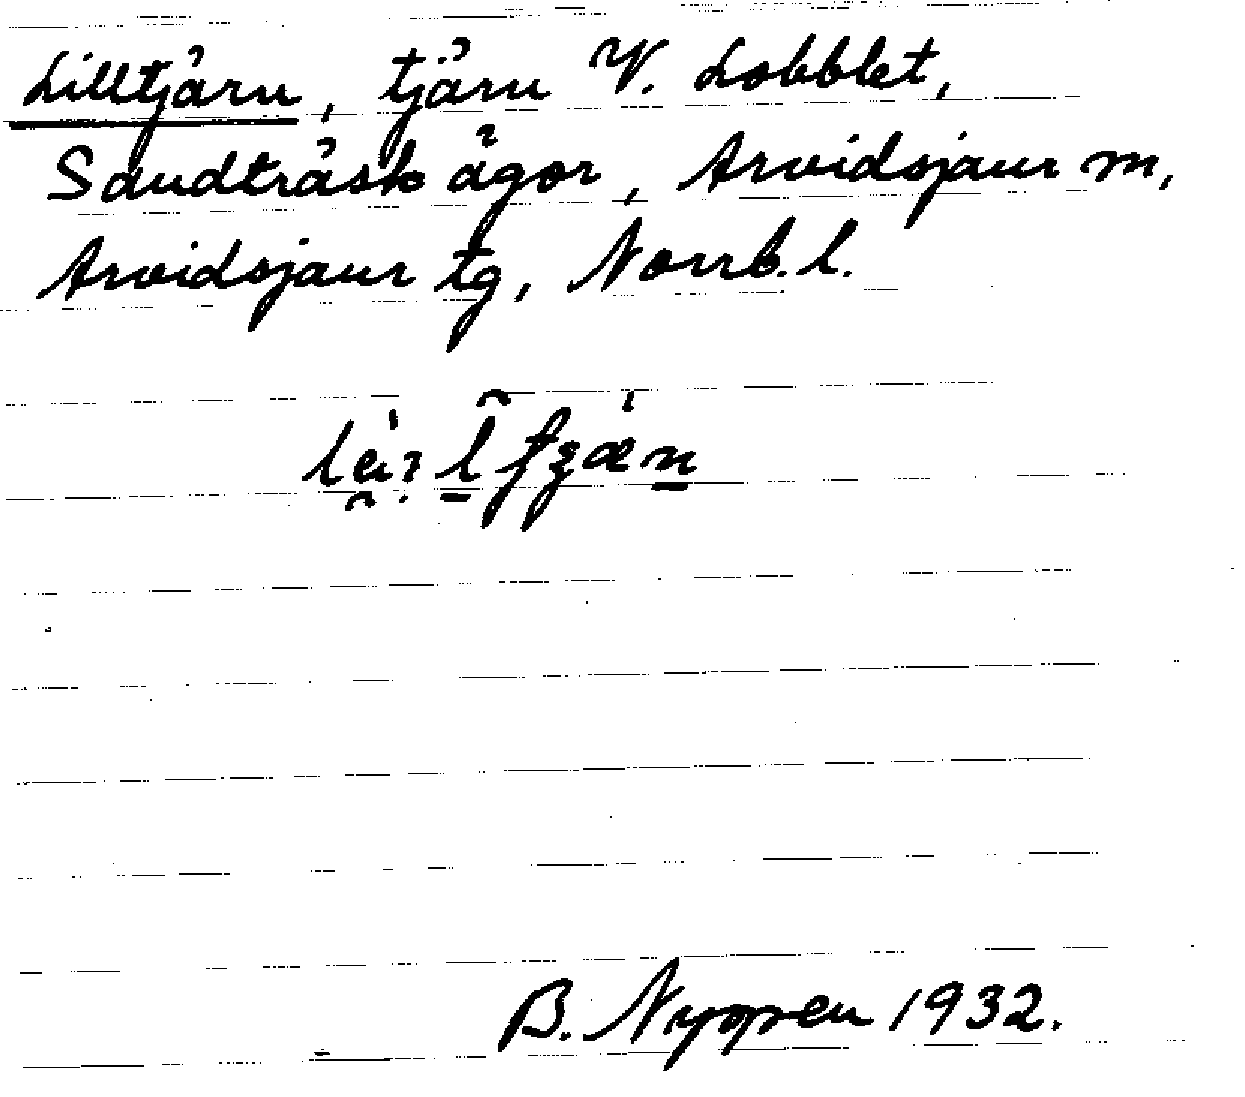 Lilltjärn, tjärn V. Lobblet,
Sandträsk ägor, Arvidsjaur m,
Arvidsjaur tg, Norrb. l.
B. Nyppen 1932.